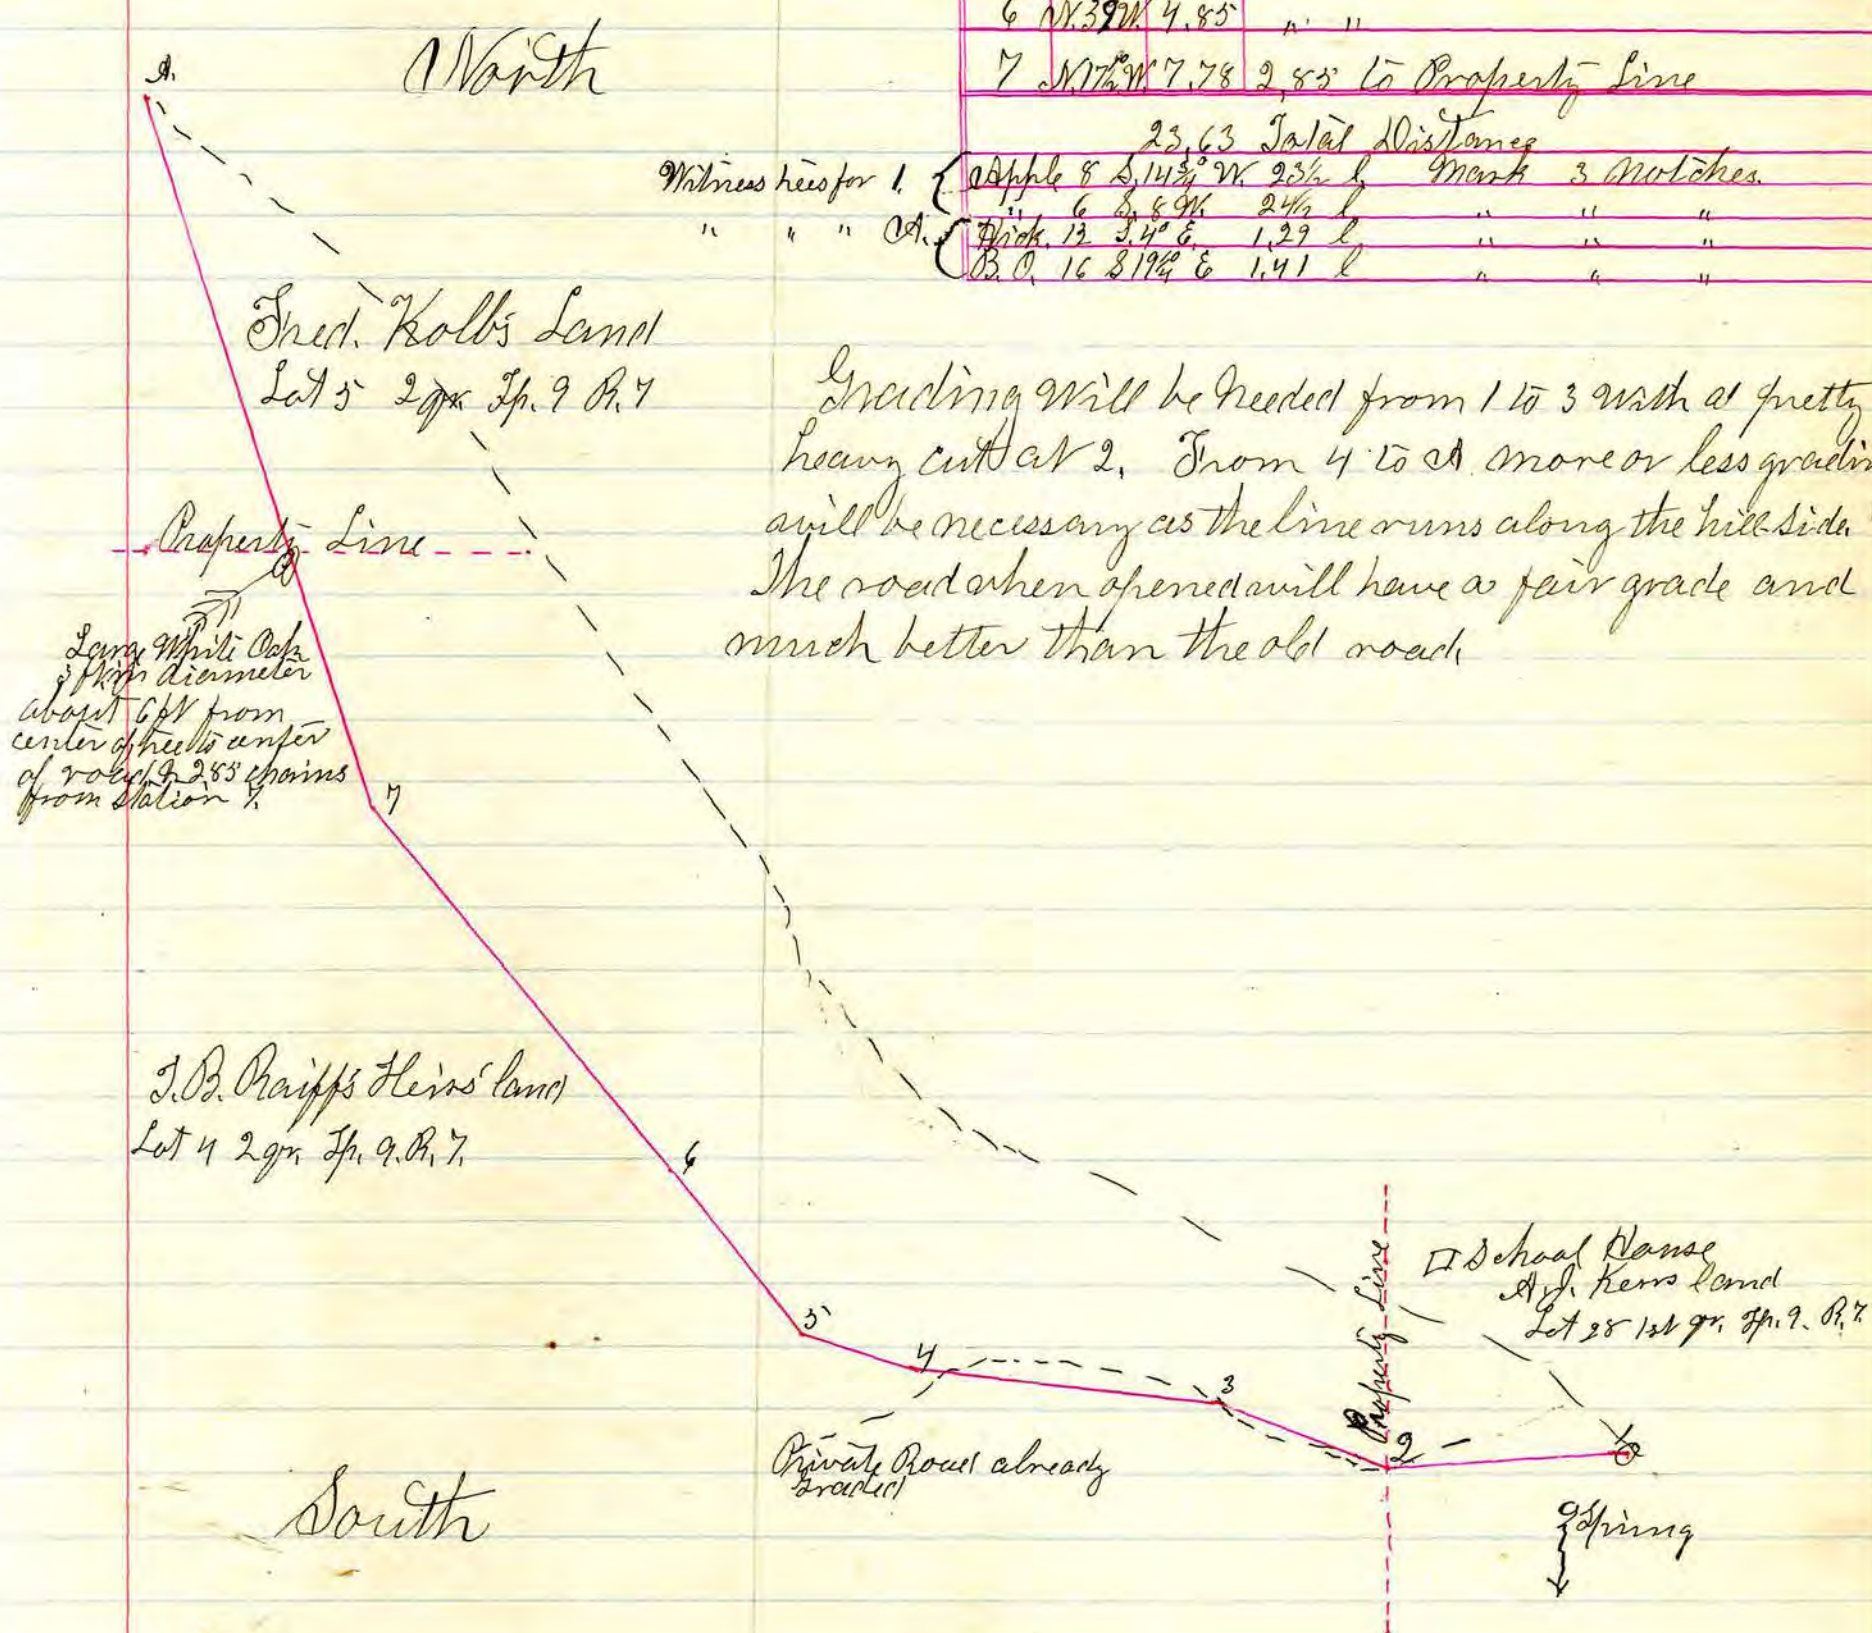 6 N.39W. 4.85 " "
7 N.17½°W. 7.78 2,85 to Property Line
23,63 Total Distance
Witness trees for 1. { Apple 8 S.14¾° W. 23½ l. Mark 3 Notches.
" 6 S. 8 W. 24½ l " " "
" " " A. { Hick. 12 S.4° E. 1,29 l " " "
B.O. 16 S 19¼° E 1,41 l " " "
North
A.
Fred. Kolb's Land
Lot 5 2 qr. Tp. 9 R. 7
Grading Will be Needed from 1 to 3 With a pretty
heavy cut at 2. From 4 to A more or less gradin
will be necessary as the line runs along the hill side.
The road when opened will have a fair grade and
much better than the old road.
Property Line
Large White Oak
3 ft in diameter
about 6 ft from
center of tree to center
of road & 2.85 chains
from Station 7.
7
J.B. Raiff's Heirs' land
Lot 4 2 qr. Tp. 9. R. 7.
6
5
4
3
Property Line
2
1
School House
A.J. Kerns land
Lot 28 1st qr. Tp. 9. R. 7.
Private Road already
graded
Spring
South